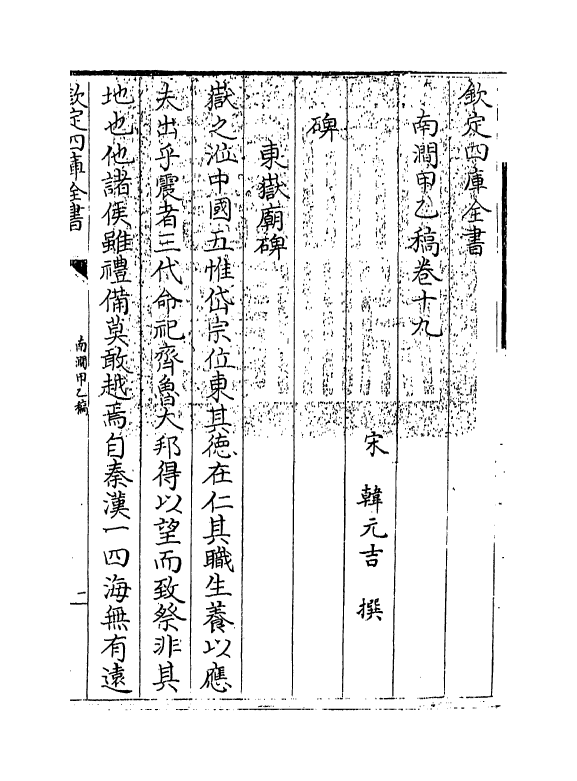 欽定四庫全書
南澗甲乙稿卷十九
宋 韓元吉 撰
碑
東嶽廟碑
嶽之涖中國五惟岱宗位東其德在仁其職生養以應
夫出乎震者三代命祀齊魯大邦得以望而致祭非其
地也他諸侯雖禮備莫敢越焉自秦漢一四海無有遠
欽定四庫全書
南澗甲乙稿